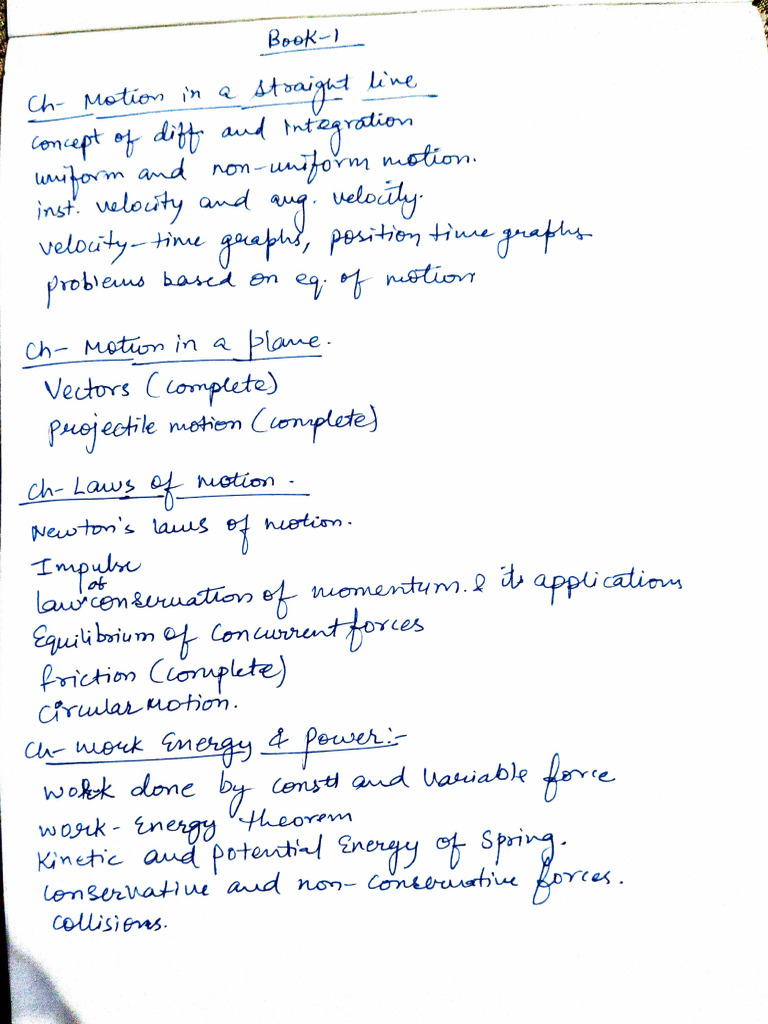 Book-1
Ch- Motion in a straight line
concept of diff and Integration
uniform and non-uniform motion.
inst. velocity and avg. velocity.
velocity-time graphs, position time graphs
problems based on eq. of motion
Ch- Motion in a plane.
Vectors (complete)
projectile motion (complete)
Ch- Laws of motion.
Newton's laws of motion.
Impulse
law of conservation of momentum. & its applications
Equilibrium of concurrent forces
friction (complete)
Circular Motion.
Ch- Work Energy & Power:-
Work done by const and variable force
work-Energy theorem
Kinetic and potential Energy of Spring.
conservative and non-conservative forces.
Collisions.